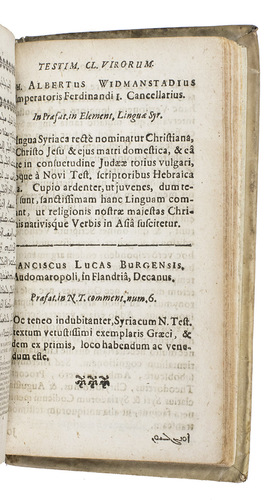 TESTIM. CL. VIRORUM.
ALBERTUS WIDMANSTADIUS
Imperatoris Ferdinandi I. Cancellarius.
In Præfat. in Element, Linguæ Syr.
ingua Syriaca rectè nominatur Christiana,
Christo Jesu & ejus matri domestica, & eâ
in consuetudine Judææ totius vulgari,
que à Novi Test. scriptoribus Hebraica
a. Cupio ardenter, ut juvenes, dum te-
sunt, sanctissimam hanc Linguam com-
ant, ut religionis nostræ majestas Chri-
nativisque Verbis in Asiâ suscitetur.
ANCISCUS LUCAS BURGENSIS,
Audomaropoli, in Flandriâ, Decanus.
Præfat. in N.T. comment. num. 6.
Oc teneo indubitanter, Syriacum N. Test.
textum vetustissimi exemplaris Græci, &
dem ex primis, loco habendum ac vene-
dum esse.